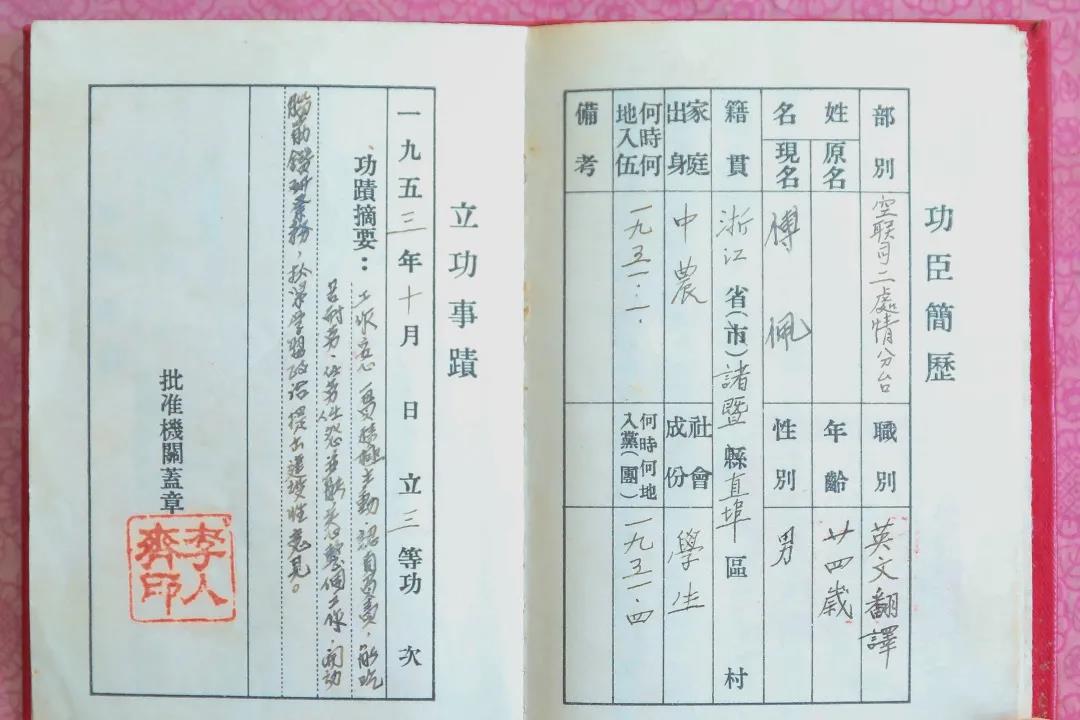 功臣簡歷
部別 空联司二處情分台 職別 英文翻譯
姓名 原名 年齡 廿四歲
現名 傅佩 性別 男
籍貫 浙江省(市)諸暨縣直埠區 村
家庭出身 中農 社會成份 學生
何時何地入伍 一九五一·一· 何時何地入黨(團) 一九五一·四
備考
立功事蹟
一九五三年十月 日立三等功 次
功蹟摘要：工作安心一貫積極主動認真負責，能吃
苦耐劳·任劳任怨并能关心整個工作，開动
腦筋鑽研業務，於深学習政治提出建設性意見。
批准機關蓋章
李人齊印